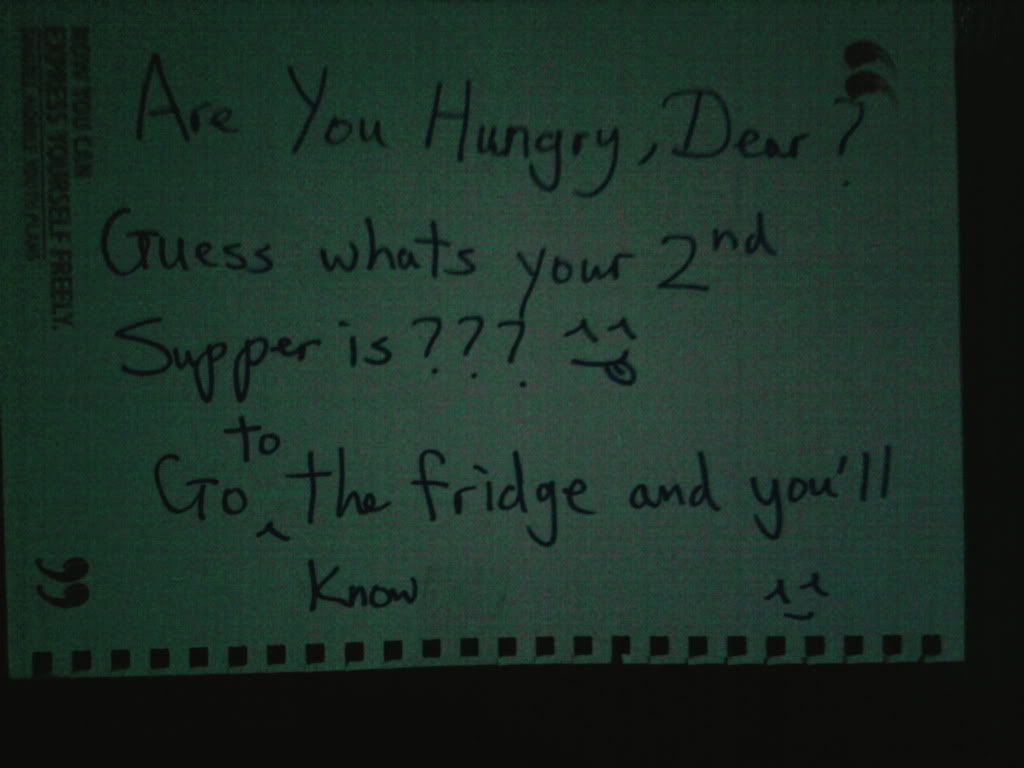 Are You Hungry, Dear?
Guess whats your 2nd
Supper is???
Go to the fridge and you'll
Know
NOW YOU CAN
EXPRESS YOURSELF FREELY.